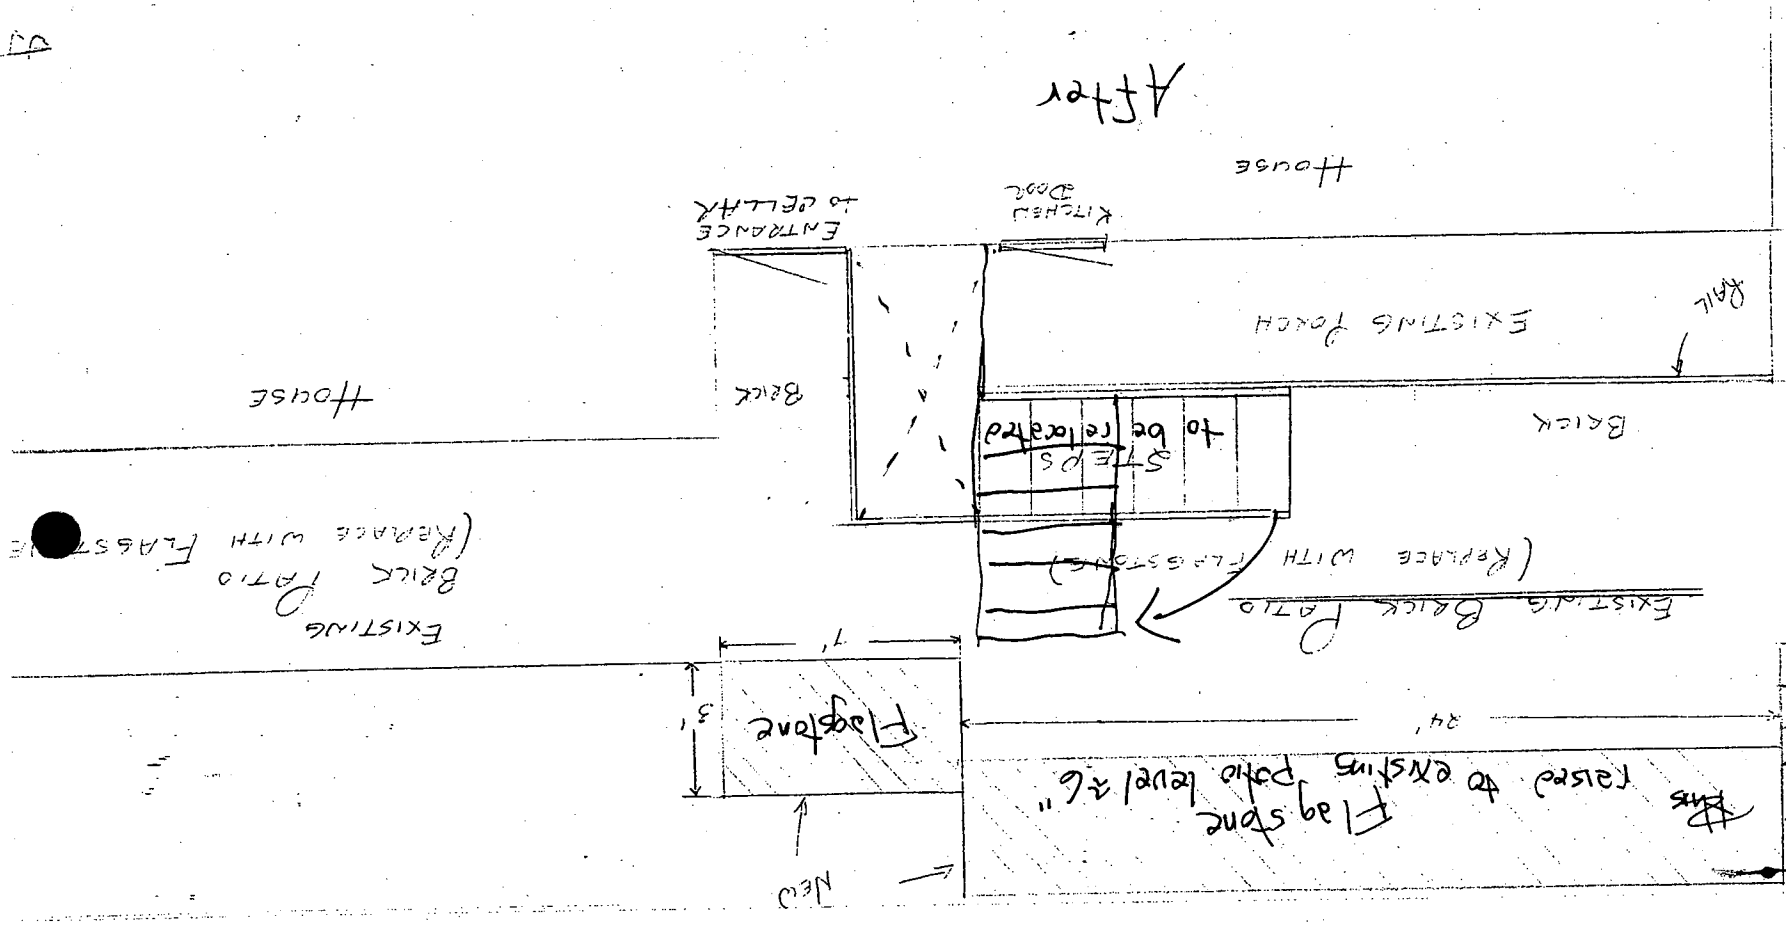 NEW
Flagstone
raised to existing patio level ≈ 6"
24'
Flagstone
3'
7'
EXISTING BRICK PATIO
(REPLACE WITH FLAGSTONE)
EXISTING
BRICK PATIO
(REPLACE WITH
STEPS
to be relocated
BRICK
BRICK
HOUSE
RAIL
EXISTING PORCH
KITCHEN
DOOR
ENTRANCE
TO CELLAR
HOUSE
After